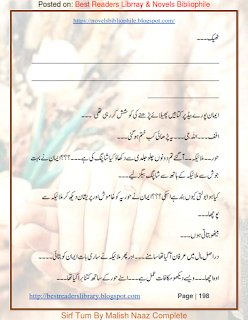 Posted on: Best Readers Librray & Novels Bibliophile
https://novelsbibliophile.blogspot.com/
ٹھیک۔۔۔
ایمان پورے بیڈ پر کتابیں پھیلائے پڑھنے کی کوشش کر رہی تھی ۔۔۔
اففف۔۔۔ اللہ جی۔۔۔ یہ پڑھائی کب ختم ہو گی۔۔۔
حور۔۔ ملائیکہ۔۔ آ گئے تم دونوں چلو جلدی سے دکھاؤ کیا شاپنگ کی ہے۔۔۔؟؟؟ ایمان نے بہت
جوش سے ملائیکہ کے ہاتھ سے شاپنگ بیگز لیے۔۔۔
کیا ہوا بوتھی کیوں بند ہے اسکی؟؟؟؟ ایمان نے حور یہ کو خاموش اور پریشان دیکھ کر ملائیکہ سے
پوچھا۔۔۔
میٹھو بتاتی ہوں۔۔۔
دراصل مال میں عرفان آ گیا تھا سامنے۔۔۔ اور پھر ملائیکہ نے ساری بات ایمان کو بتائی۔۔۔۔
اوہ اچھا۔۔۔ ویسے دیکھو مکافات عمل ہے۔۔۔ اسنے حور کے ساتھ کتنا برا کیا تھا۔۔۔
http://bestreaderslibrary.blogspot.com/
Page | 198
Sirf Tum By Malish Naaz Complete